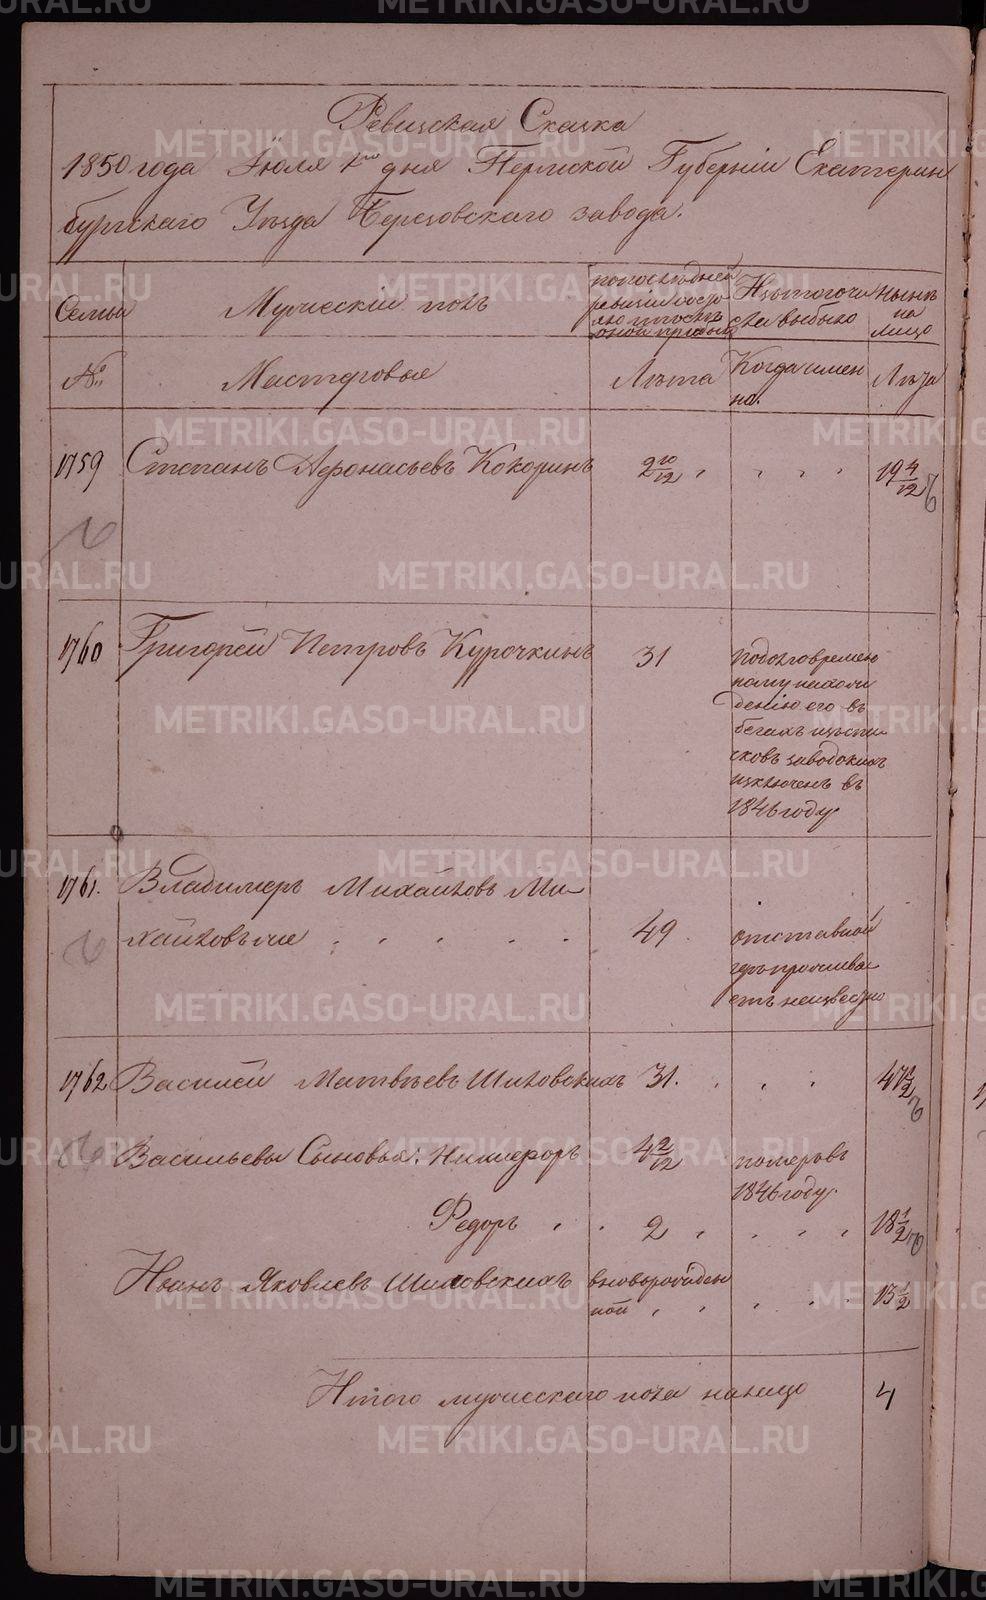 Ревизская Сказка
1850 года Июля 1го дня Пермской Губернiи Екатерин
бургскаго Уѣзда Березовскаго завода.
Семьи
Мужескiй полъ
попослѣдней
ревизiи состо
яло и послѣ
оной прибыло
Изътогочи
сла выбыло
Нынѣ
на
лицо
№
Мастеровые
Лѣта
Когда имен
но.
Лѣта
1759 Степанъ Афонасьевъ Кокоринъ 2 10/12 19 4/12
1760 Григорей Петровъ Курочкинъ 31
подолговремен
ному нахож
денiю его въ
бегахъ изъспи
сковъ заводскихъ
изключенъ въ
1846 году.
1761. Владимеръ Михайловъ Ми
хайловъ же 49 отставной
гдѣ прожива
етъ неизвестно
1762 Василей Матвѣевъ Шиловскихъ 31. 47 1/2
Васильевы Сыновья: Никифоръ 4 2/12 померъ въ
1846 году.
Федоръ 2 18 1/2
Иванъ Яковлевъ Шиловскихъ вновьрожден
ной 15 1/2
Итого мужескаго пола налицо 4
METRIKI.GASO-URAL.RU